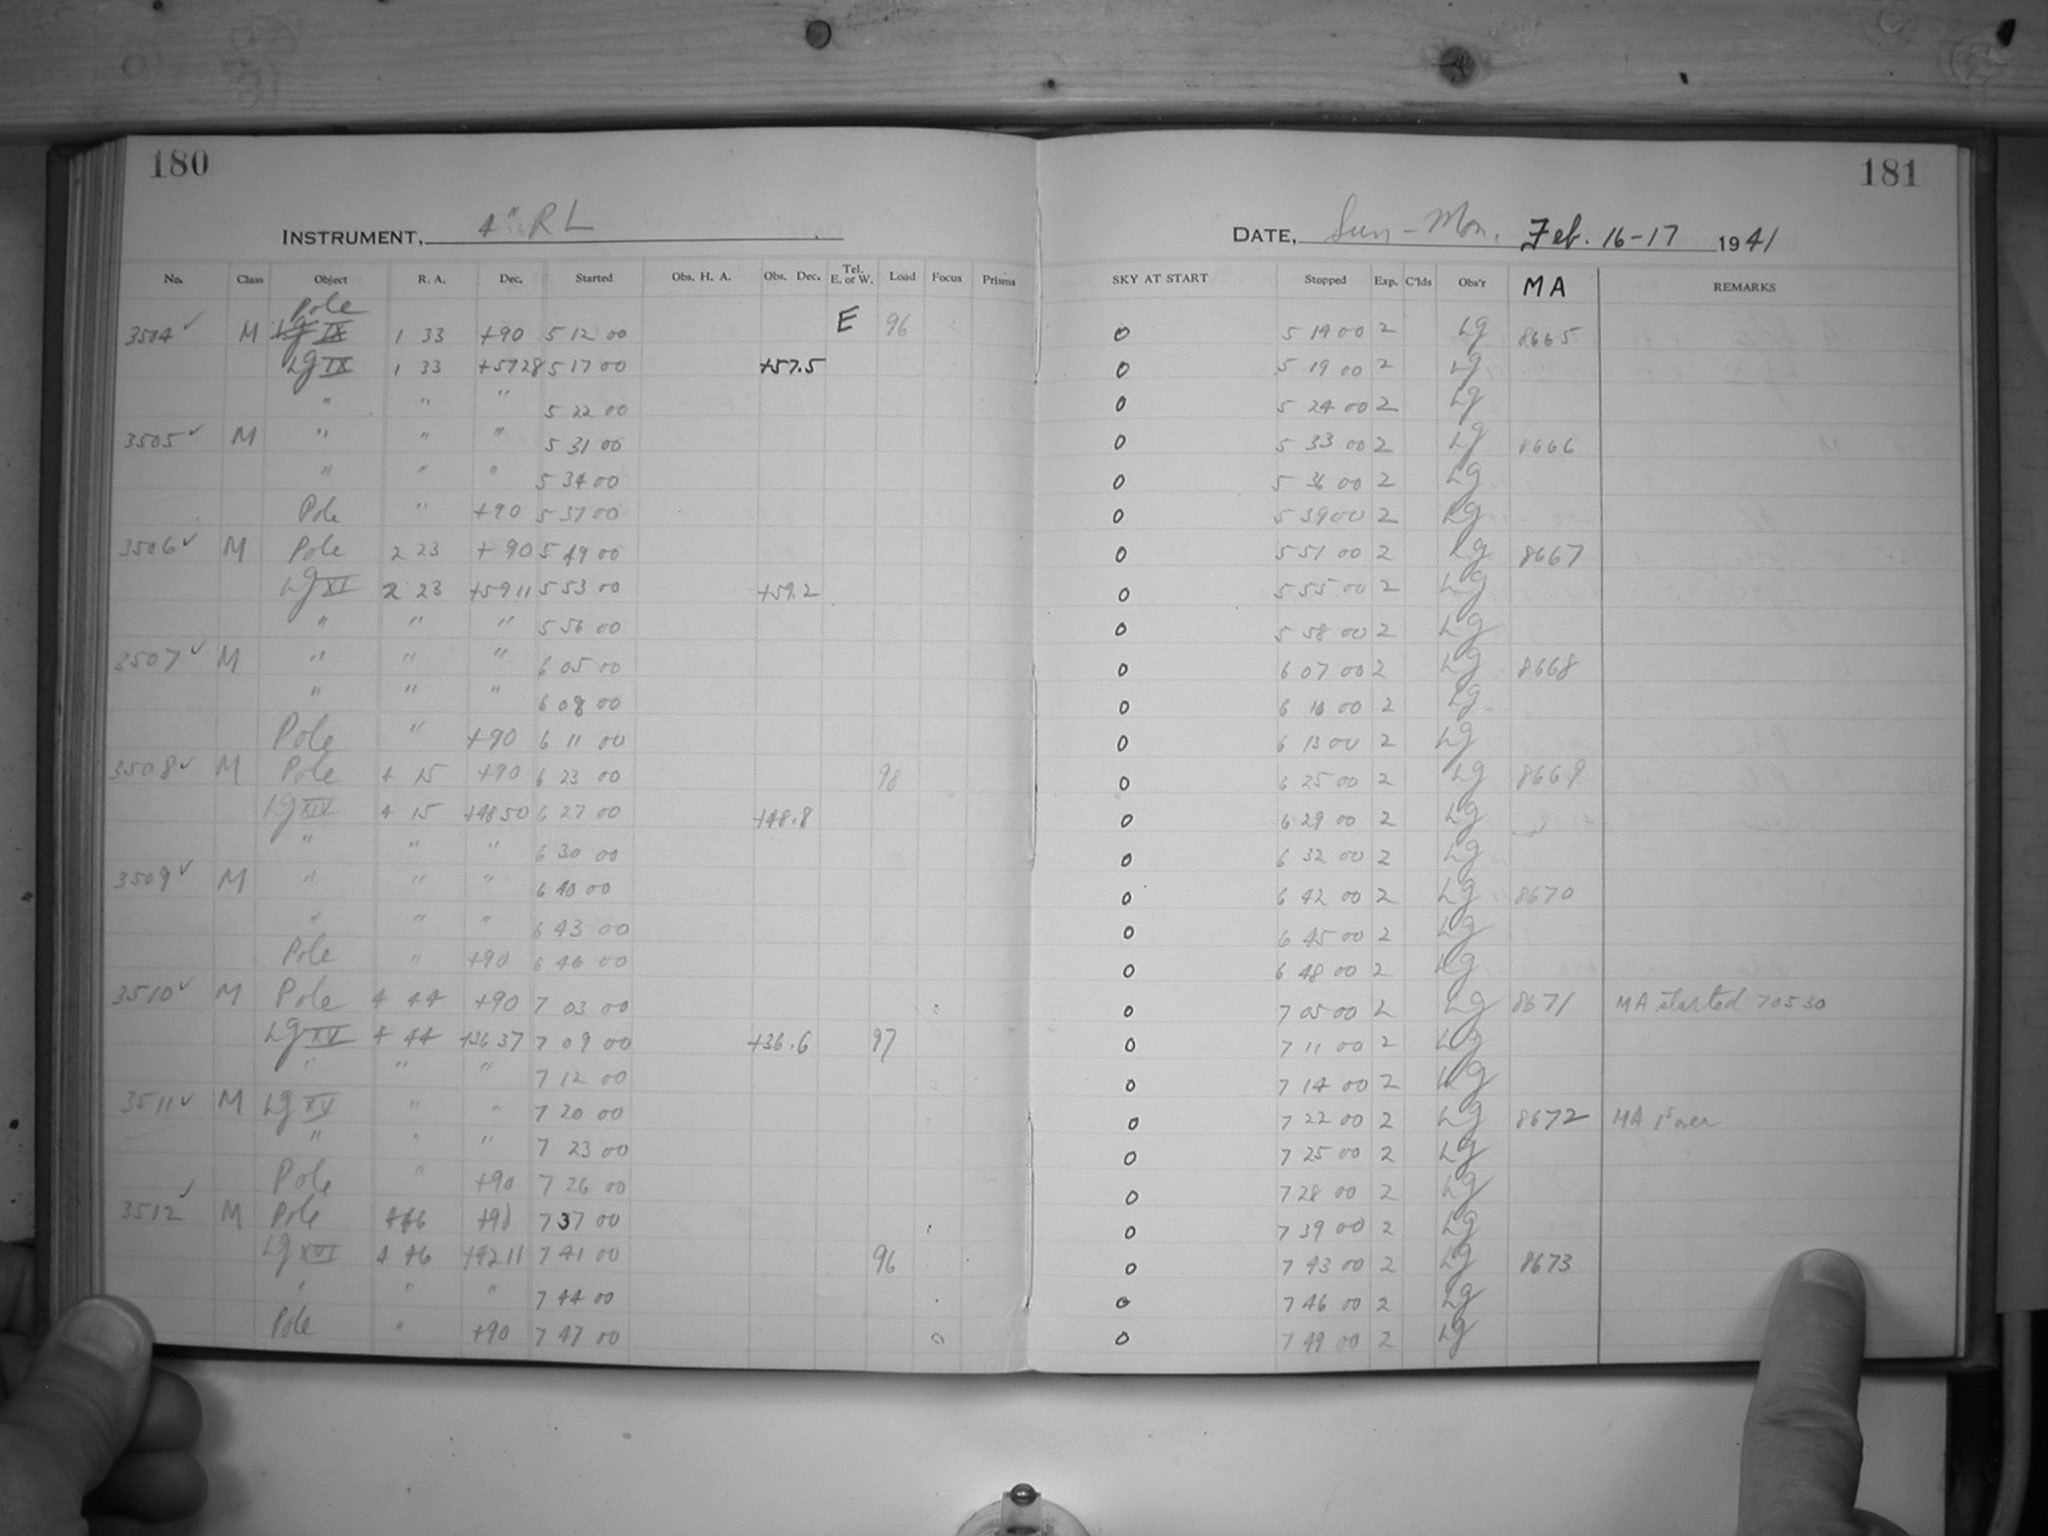 180
181
INSTRUMENT, 4" RL
DATE, Sun-Mon. Feb. 16-17 1941
No. Class Object R. A. Dec. Started Obs. H. A. Obs. Dec. Tel. E. or W. Load Focus Prisms SKY AT START Stopped Exp. C'lds Obs'r MA REMARKS
Pole
3504 ✓ M Lg IX 1 33 +90 5 12 00 E 96 0 5 14 00 2 Lg 8665
Lg IX 1 33 +5728 5 17 00 +57.5 0 5 19 00 2 Lg
" " " 5 22 00 0 5 24 00 2 Lg
3505 ✓ M " " " 5 31 00 0 5 33 00 2 Lg 8666
" " " 5 34 00 0 5 36 00 2 Lg
Pole " +90 5 37 00 0 5 39 00 2 Lg
3506 ✓ M Pole 2 23 +90 5 49 00 0 5 51 00 2 Lg 8667
Lg XI 2 23 +5911 5 53 00 +59.2 0 5 55 00 2 Lg
" " " 5 56 00 0 5 58 00 2 Lg
3507 ✓ M " " " 6 05 00 0 6 07 00 2 Lg 8668
" " " 6 08 00 0 6 10 00 2 Lg
Pole " +90 6 11 00 0 6 13 00 2 Lg
3508 ✓ M Pole 4 15 +90 6 23 00 98 0 6 25 00 2 Lg 8669
Lg XIV 4 15 +4850 6 27 00 +48.8 0 6 29 00 2 Lg
" " " 6 30 00 0 6 32 00 2 Lg
3509 ✓ M " " " 6 40 00 0 6 42 00 2 Lg 8670
" " " 6 43 00 0 6 45 00 2 Lg
Pole " +90 6 46 00 0 6 48 00 2 Lg
3510 ✓ M Pole 4 44 +90 7 03 00 0 7 05 00 2 Lg 8671 MA started 7 05 30
Lg XV 4 44 +3637 7 09 00 +36.6 97 0 7 11 00 2 Lg
" " " 7 12 00 0 7 14 00 2 Lg
3511 ✓ M Lg XV " " 7 20 00 0 7 22 00 2 Lg 8672 MA
" " " 7 23 00 0 7 25 00 2 Lg
Pole " +90 7 26 00 0 7 28 00 2 Lg
3512 ✓ M Pole 4 46 +90 7 37 00 0 7 39 00 2 Lg
Lg XVI 4 46 +4211 7 41 00 96 0 7 43 00 2 Lg 8673
" " " 7 44 00 0 7 46 00 2 Lg
Pole " +90 7 47 00 0 7 49 00 2 Lg